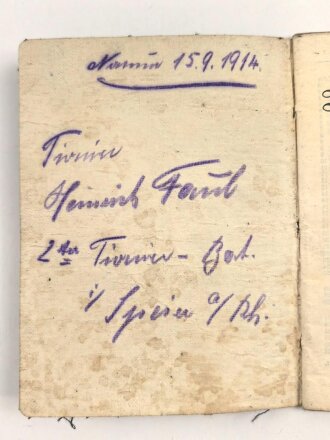 Namur 15.9.1914.
Pionier
Heinrich Faul
2ter Pionier - Bat.
i/ Speier a/Rh.